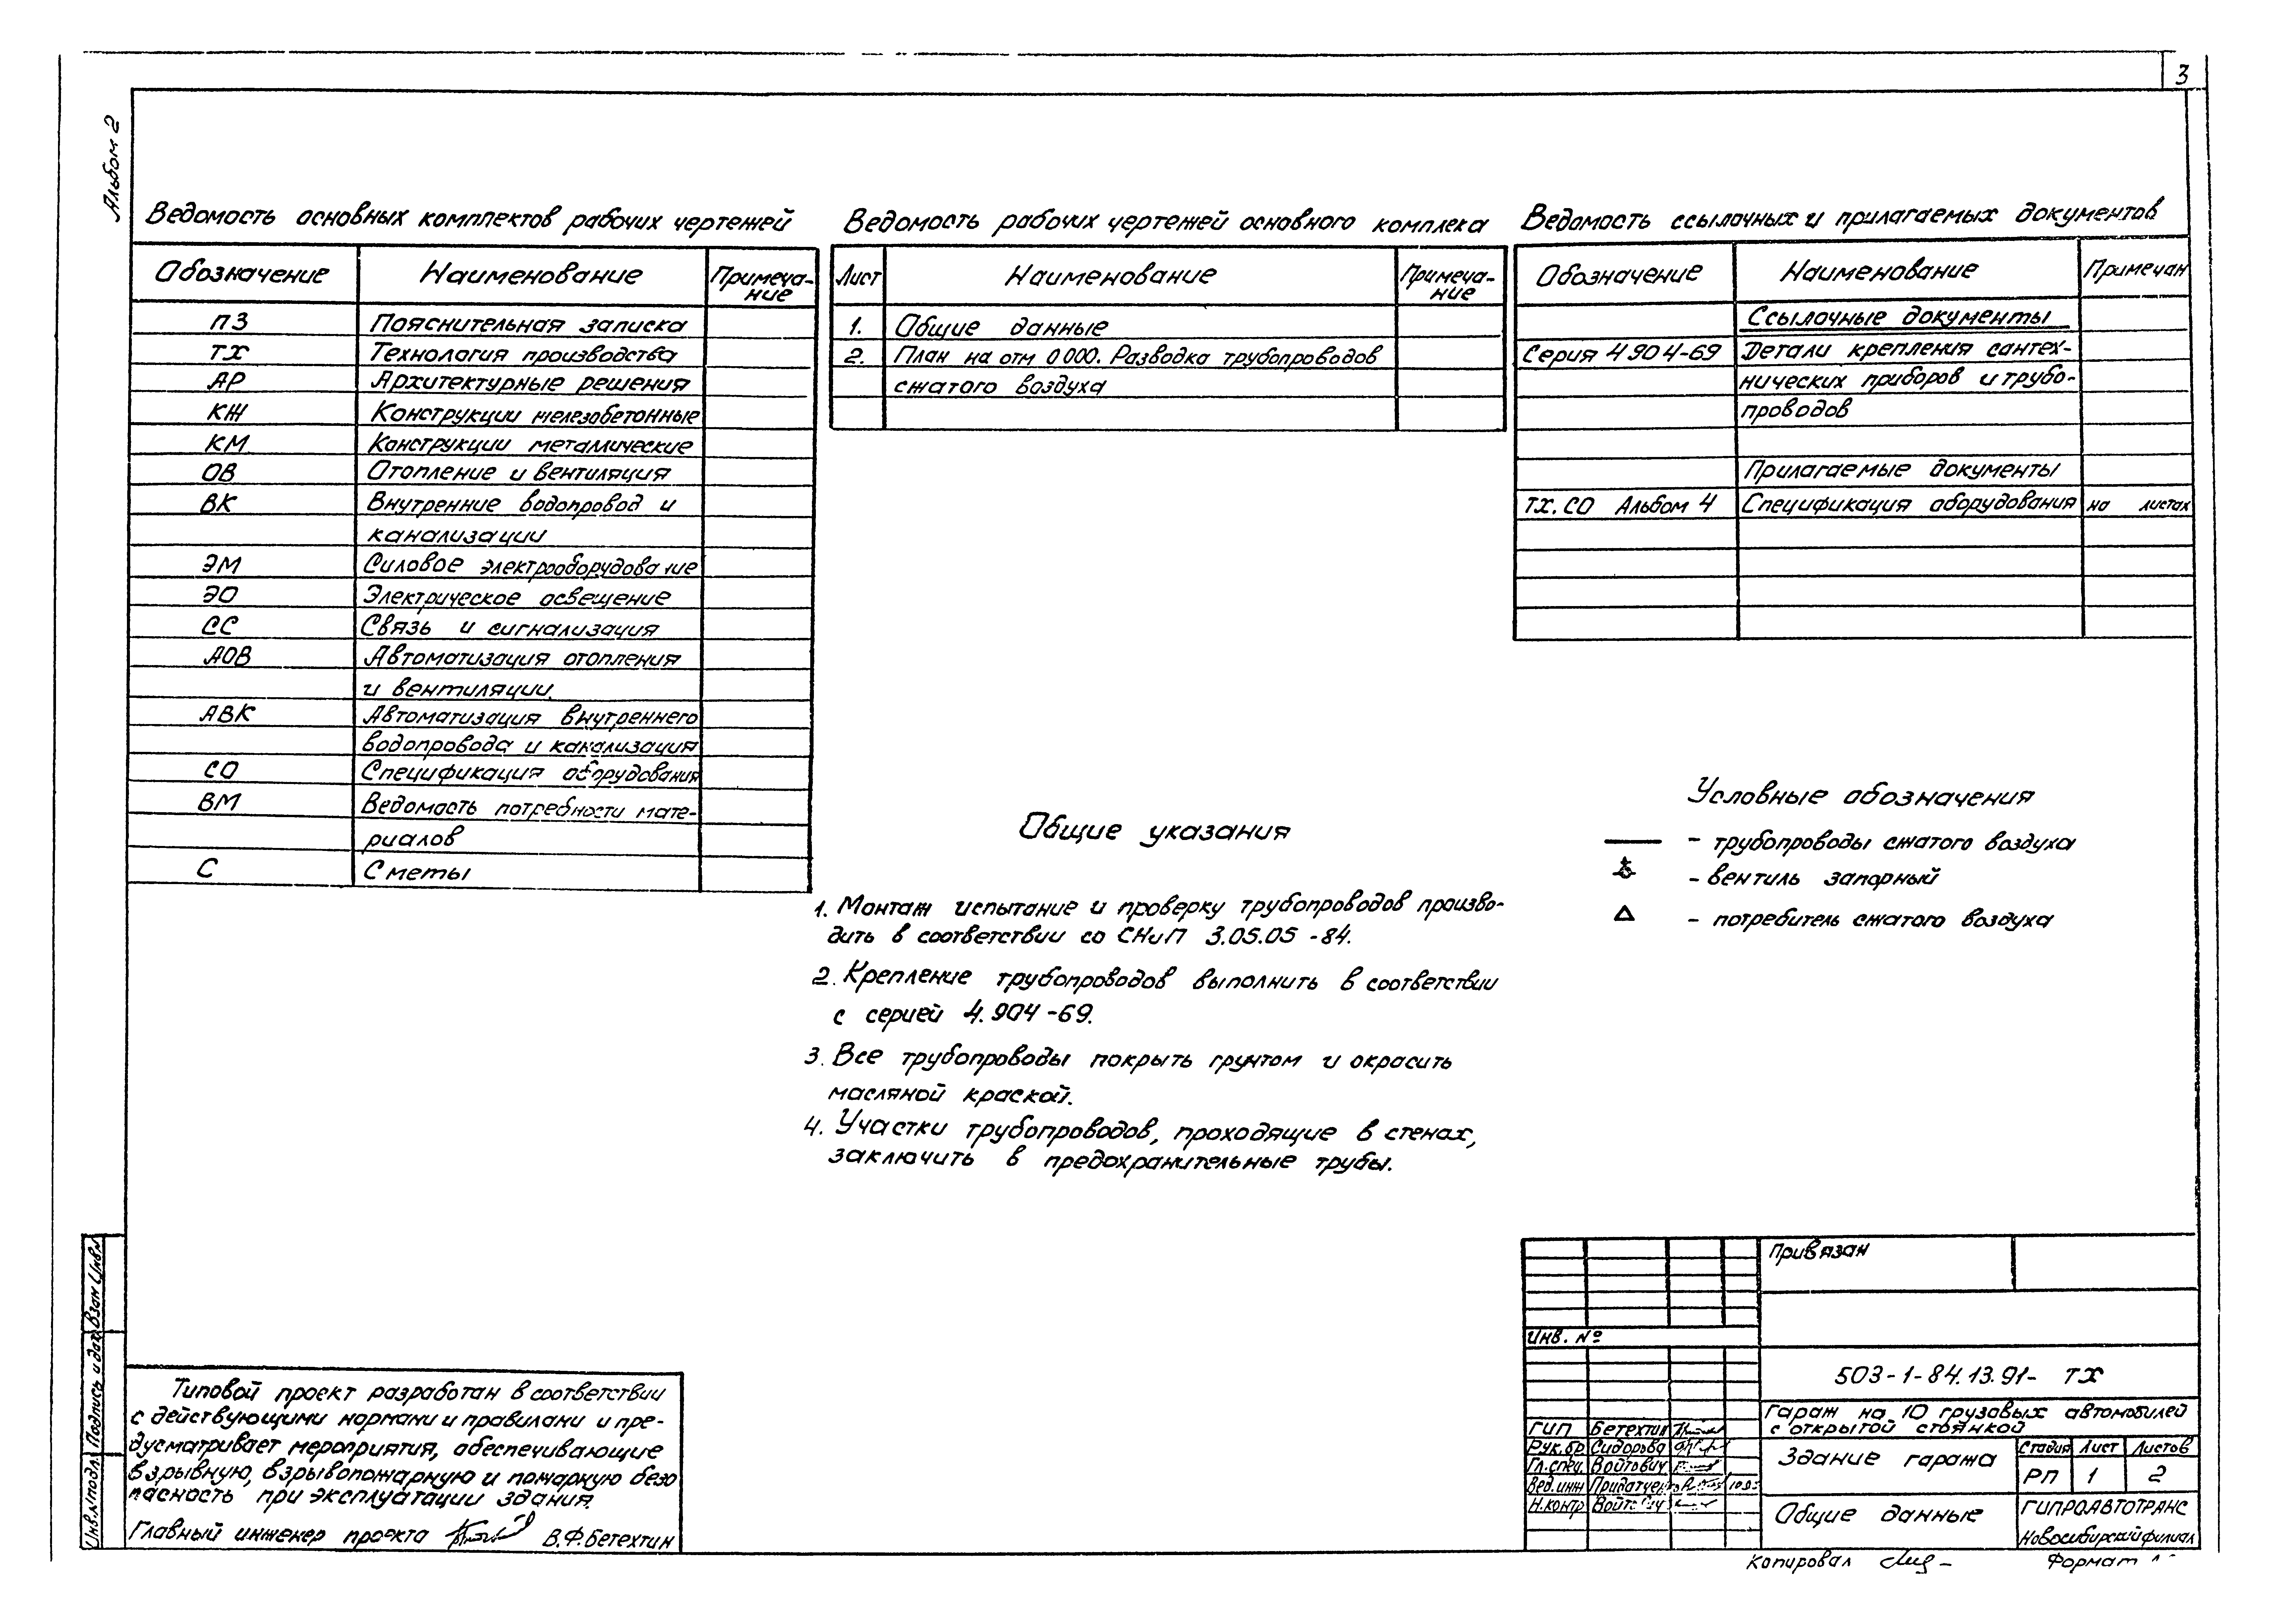 3
Альбом 2
Ведомость основных комплектов рабочих чертежей
Обозначение Наименование Примеча-
ние
ПЗ Пояснительная записка
ТХ Технология производства
АР Архитектурные решения
КЖ Конструкции железобетонные
КМ Конструкции металлические
ОВ Отопление и вентиляция
ВК Внутренние водопровод и
канализации
ЭМ Силовое электрооборудование
ЭО Электрическое освещение
СС Связь и сигнализация
АОВ Автоматизация отопления
и вентиляции.
АВК Автоматизация внутреннего
водопровода и канализация
СО Спецификация оборудования
ВМ Ведомость потребности мате-
риалов
С Сметы
Ведомость рабочих чертежей основного комплека
Лист Наименование Примеча-
ние
1. Общие данные
2. План на отм 0 000. Разводка трубопроводов
сжатого воздуха
Ведомость ссылочных и прилагаемых документов
Обозначение Наименование Примечан
Ссылочные документы
Серия 4 904-69 Детали крепления сантех-
нических приборов и трубо-
проводов
Прилагаемые документы
ТХ. СО Альбом 4 Спецификация оборудования на листах
Общие указания
1. Монтаж испытание и проверку трубопроводов произво-
дить в соответствии со СНиП 3.05.05 -84.
2. Крепление трубопроводов выполнить в соответствии
с серией 4.904-69.
3. Все трубопроводы покрыть грунтом и окрасить
масляной краской.
4. Участки трубопроводов, проходящие в стенах,
заключить в предохранительные трубы.
Условные обозначения
- трубопроводы сжатого воздуха
- вентиль запорный
- потребитель сжатого воздуха
Взам Инв№
Подпись и дата
Инв.№подл.
Типовой проект разработан в соответствии
с действующими нормани и правилани и пре-
дусматривает мероприятия, обеспечивающие
взрывную, взрывопожарную и пожарную безо
пасность при эксплуатации здания.
Главный инженер проекта В.Ф.Бетехтин
Привязан
Инв. №
503-1-84.13.91- ТХ
Гараж на 10 грузовых автомобилей
с открытой стоянкой
ГИП Бетехтин
Рук.бр Сидорова
Гл.спец. Войтович
Вед.инж
Н.контр Войтович
Здание гаража
Стадия Лист Листов
РП 1 2
Общие данные
ГИПРОАВТОТРАНС
Новосибирский филиал
Копировал
Формат